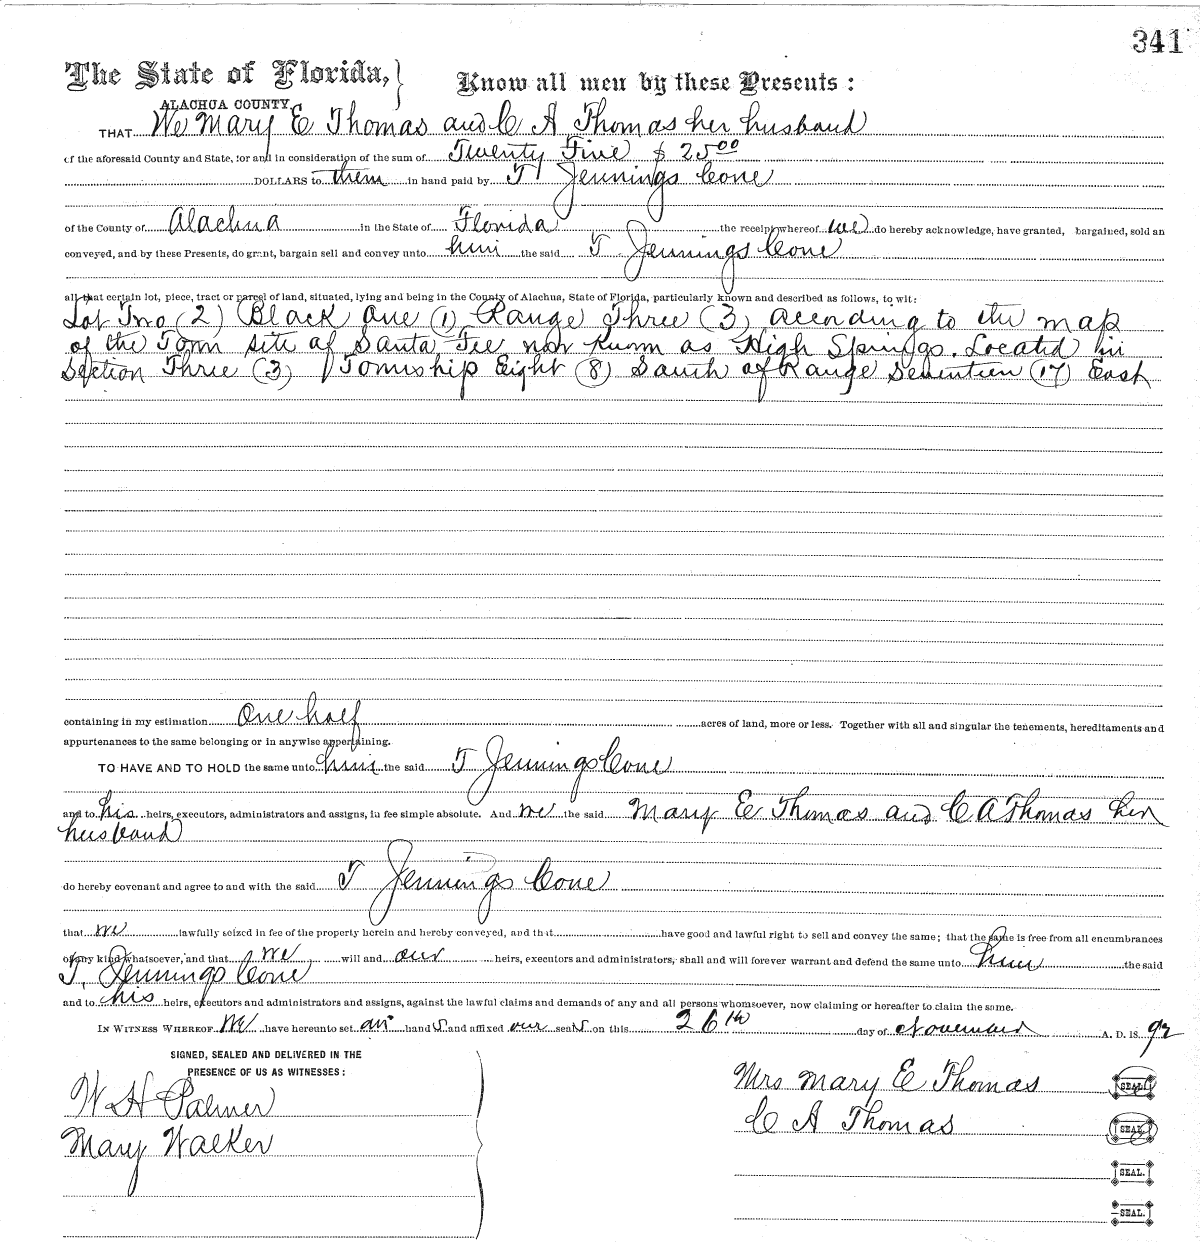 341
The State of Florida, } Know all men by these Presents:
ALACHUA COUNTY.
THAT We Mary E Thomas and C A Thomas her husband
of the aforesaid County and State, for and in consideration of the sum of Twenty Five $ 25 00
DOLLARS to them in hand paid by T Jennings Cone
of the County of Alachua in the State of Florida the receipt whereof we do hereby acknowledge, have granted, bargained, sold an
conveyed, and by these Presents, do grant, bargain sell and convey unto him the said T. Jennings Cone
all that certain lot, piece, tract or parcel of land, situated, lying and being in the County of Alachua, State of Florida, particularly known and described as follows, to wit:
Lot Two (2) Block One (1) Range Three (3) according to the map
of the Town site of Santa Fee now known as High Springs. Located in
Section Three (3) Township Eight (8) South of Range Seventeen (17) East
containing in my estimation One half acres of land, more or less. Together with all and singular the tenements, hereditaments and
appurtenances to the same belonging or in anywise appertaining.
TO HAVE AND TO HOLD the same unto him the said T Jennings Cone
and to his heirs, executors, administrators and assigns, in fee simple absolute. And we the said Mary E Thomas and C A Thomas her
husband
do hereby covenant and agree to and with the said T Jennings Cone
that we lawfully seized in fee of the property herein and hereby conveyed, and that have good and lawful right to sell and convey the same; that the same is free from all encumbrances
of any kind whatsoever, and that we will and our heirs, executors and administrators, shall and will forever warrant and defend the same unto him the said
T. Jennings Cone
and to his heirs, executors and administrators and assigns, against the lawful claims and demands of any and all persons whomsoever, now claiming or hereafter to claim the same.
IN WITNESS WHEREOF We have hereunto set our hand s and affixed our seal s on this 26th day of November A. D. 18 92
SIGNED, SEALED AND DELIVERED IN THE
PRESENCE OF US AS WITNESSES:
Mrs Mary E Thomas SEAL.
W H Palmer
C A Thomas SEAL.
Mary Walker
SEAL.
SEAL.